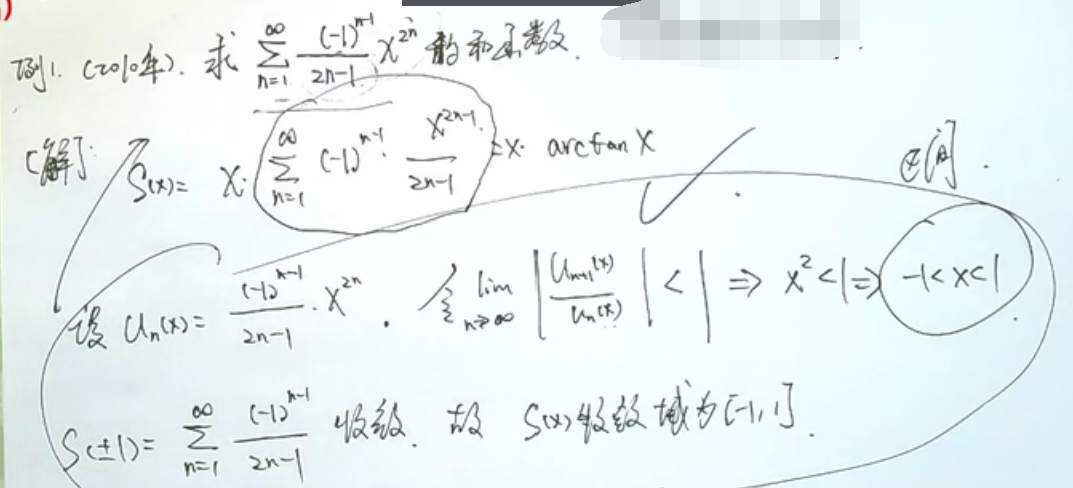 例1. (2010年). 求 $\sum_{n=1}^{\infty} \frac{(-1)^{n-1}}{2n-1} x^{2n}$ 的和函数.
[解]: $S(x) = x \cdot \sum_{n=1}^{\infty} (-1)^{n-1} \cdot \frac{x^{2n-1}}{2n-1} = x \cdot \arctan x$
设 $u_n(x) = \frac{(-1)^{n-1}}{2n-1} \cdot x^{2n}$. 令 $\lim_{n \to \infty} \left| \frac{u_{n+1}(x)}{u_n(x)} \right| < 1 \Rightarrow x^2 < 1 \Rightarrow -1 < x < 1$
$S(\pm 1) = \sum_{n=1}^{\infty} \frac{(-1)^{n-1}}{2n-1}$ 收敛. 故 $S(x)$ 收敛域为 $[-1, 1]$.